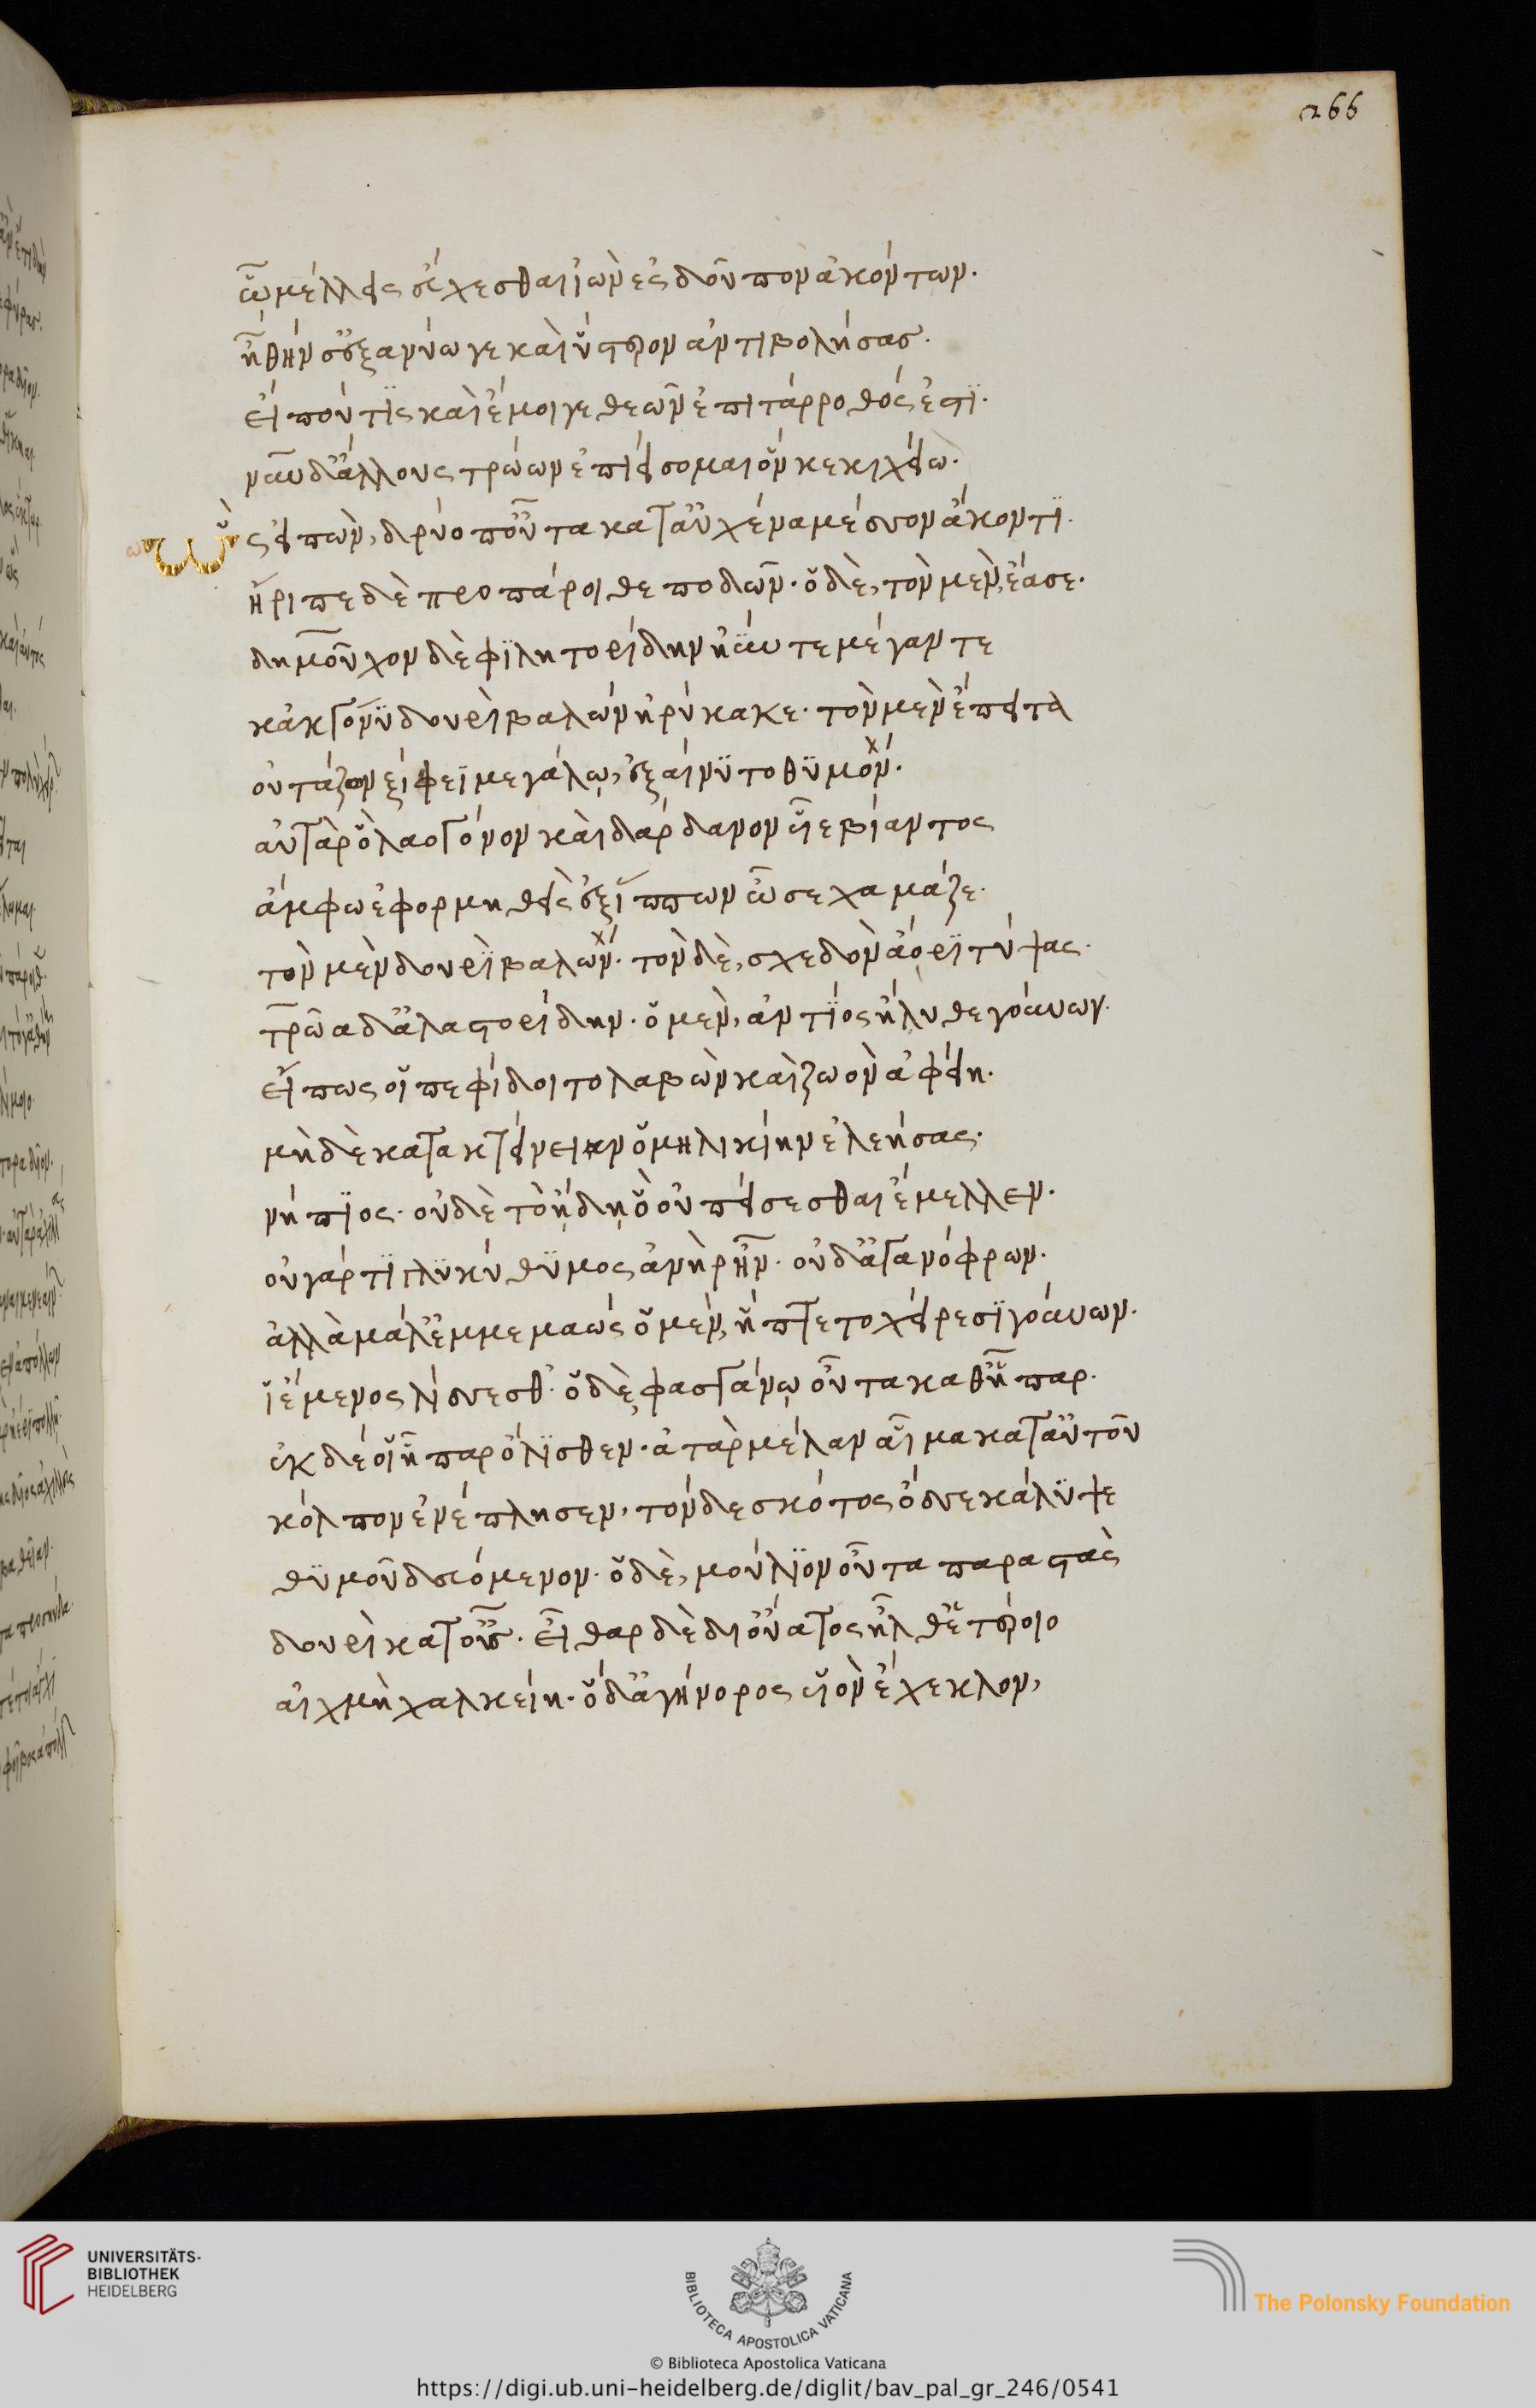 266
ᾧ μέλλεις εὔχεσθαι ἰὼν ἐς δοῦπον ἀκόντων.
ἦ θήν σ' ἐξανύω γε καὶ ὕστερον ἀντιβολήσας.
εἴ πού τις καὶ ἔμοιγε θεῶν ἐπιτάρροθός ἐστι.
νῦν δ' ἄλλους τρώων ἐπιείσομαι ὅν κε κιχείω.
Ὣς εἰπὼν, δρύοπ' οὖτα κατ' αὐχένα μέσσον ἄκοντι.
ἤριπε δὲ προπάροιθε ποδῶν. ὁ δὲ, τὸν μὲν, ἔασε.
δημοῦχον δὲ φιλητορίδην ἠΰν τε μέγαν τε
κὰκ γόνυ δουρὶ βαλὼν ἠρύκακε. τὸν μὲν ἔπειτα
οὐτάζων ξίφεϊ μεγάλῳ, ἐξαίνυτο θυμόν.
αὐτὰρ ὁ λαόγονον καὶ δάρδανον υἷε βίαντος
ἄμφω ἐφορμηθεὶς ἐξ ἵππων ὦσε χαμάζε.
τὸν μὲν δουρὶ βαλών. τὸν δὲ, σχεδὸν ἄορι τύψας.
τρῶα δ' ἀλαστορίδην. ὁ μὲν, ἀντίος ἤλυθε γούνων.
εἴ πως οἱ πεφίδοιτο λαβὼν καὶ ζωὸν ἀφείη.
μὴ δὲ κατακτείνειεν ὁμηλικίην ἐλεήσας.
νήπιος. οὐδὲ τὸ ᾔδη ὃ οὐ πείσεσθαι ἔμελλεν.
οὐ γάρ τι γλυκύθυμος ἀνὴρ ἦν. οὐδ' ἀγανόφρων.
ἀλλὰ μάλ' ἐμμεμαώς ὁ μὲν, ἥπτετο χείρεσι γούνων.
ἱέμενος λίσσεσθ'. ὁ δὲ φασγάνῳ οὖτα καθ' ἧπαρ.
ἐκ δέ οἱ ἧπαρ ὄλισθεν. ἀτὰρ μέλαν αἷμα κατ' αὐτοῦ
κόλπον ἐνέπλησεν, τὸν δὲ σκότος ὄσσε κάλυψε
θυμοῦ δευόμενον. ὁ δὲ, μούλιον οὖτα παραστὰς
δουρὶ κατ' οὖς. εἶθαρ δὲ δι' οὔατος ἦλθ' ἑτέροιο
αἰχμὴ χαλκείη. ὁ δ' ἀγήνορος υἱὸν ἔχεκλον,
UNIVERSITÄTS-
BIBLIOTHEK
HEIDELBERG
BIBLIOTECA APOSTOLICA VATICANA
The Polonsky Foundation
© Biblioteca Apostolica Vaticana
https://digi.ub.uni-heidelberg.de/diglit/bav_pal_gr_246/0541